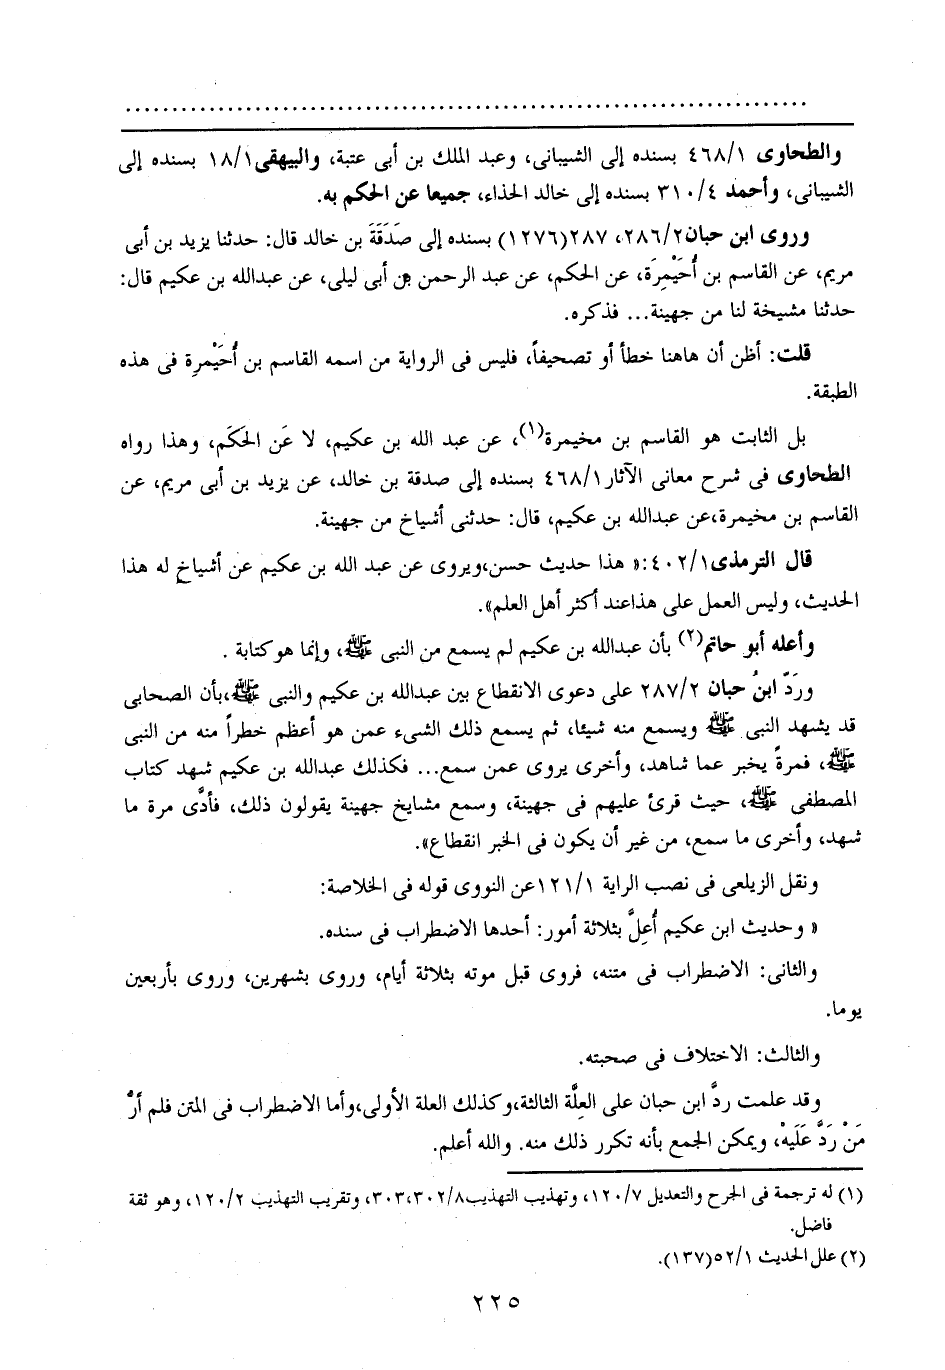 والطحاوى ٤٦٨/١ بسنده إلى الشيبانى، وعبد الملك بن أبى عتبة، والبيهقى١٨/١ بسنده إلى
الشيبانى، وأحمد ٣١٠/٤ بسنده إلى خالد الحذاء، جميعا عن الحكم به.
وروى ابن حبان٢٨٦/٢، ٢٨٧(١٢٧٦) بسنده إلى صَدَقَةَ بن خالد قال: حدثنا يزيد بن أبى
مريم، عن القاسم بن أُحَيْمِرَة، عن الحكم، عن عبد الرحمن بن أبى ليلى، عن عبدالله بن عكيم قال:
حدثنا مشيخة لنا من جهينة... فذكره.
قلت: أظن أن هاهنا خطأ أو تصحيفاً، فليس فى الرواية من اسمه القاسم بن أُحَيْمِرة فى هذه
الطبقة.
بل الثابت هو القاسم بن مخيمرة(١)، عن عبد الله بن عكيم، لا عَن الحَكَم، وهذا رواه
الطحاوى فى شرح معانى الآثار٤٦٨/١ بسنده إلى صدقة بن خالد، عن يزيد بن أبى مريم، عن
القاسم بن مخيمرة،عن عبدالله بن عكيم، قال: حدثنى أشياخ من جهينة.
قال الترمذى٤٠٢/١:« هذا حديث حسن،ويروى عن عبد الله بن عكيم عن أشياخ له هذا
الحديث، وليس العمل على هذاعند أكثر أهل العلم».
وأعله أبو حاتم(٢) بأن عبدالله بن عكيم لم يسمع من النبى ﷺ، وإنما هو كتابة .
ورَدَّ ابنُ حبان ٢٨٧/٢ على دعوى الانقطاع بين عبدالله بن عكيم والنبى ﷺ،بأن الصحابى
قد يشهد النبى ﷺ ويسمع منه شيئا، ثم يسمع ذلك الشىء عمن هو أعظم خطراً منه من النبى
ﷺ، فمرةً يخبر عما شاهد، وأخرى يروى عمن سمع... فكذلك عبدالله بن عكيم شهد كتاب
المصطفى ﷺ، حيث قرئ عليهم فى جهينة، وسمع مشايخ جهينة يقولون ذلك، فأدَّى مرة ما
شهد، وأخرى ما سمع، من غير أن يكون فى الخبر انقطاع».
ونقل الزيلعى فى نصب الراية ١٢١/١عن النووى قوله فى الخلاصة:
« وحديث ابن عكيم أُعِلَّ بثلاثة أمور: أحدها الاضطراب فى سنده.
والثانى: الاضطراب فى متنه، فروى قبل موته بثلاثة أيام، وروى بشهرين، وروى بأربعين
يوما.
والثالث: الاختلاف فى صحبته.
وقد علمت ردَّ ابن حبان على العِلَّة الثالثة،وكذلك العلة الأولى،وأما الاضطراب فى المتن فلم أرَ
مَنْ رَدَّ عَلَيهْ، ويمكن الجمع بأنه تكرر ذلك منه. والله أعلم.
(١) له ترجمة فى الجرح والتعديل ١٢٠/٧، وتهذيب التهذيب٣٠٣،٣٠٢/٨، وتقريب التهذيب ١٢٠/٢، وهو ثقة
فاضل.
(٢) علل الحديث ٥٢/١(١٣٧).
٢٢٥